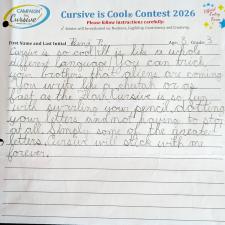 CAMPAIGN for Cursive
Cursive is Cool® Contest 2026
Please follow instructions carefully.
First Name and Last Initial Age Grade 3
Cursive is so cool! It is like a whole
different language! You can trick
your brothers that aliens are coming.
You write like a cheetah or as
fast as the Flash. Cursive is so fun
with swirling your pencil, dotting
your letters and not having to stop
at all. Simply some of the greatest
letters. Cursive will stick with me
forever.